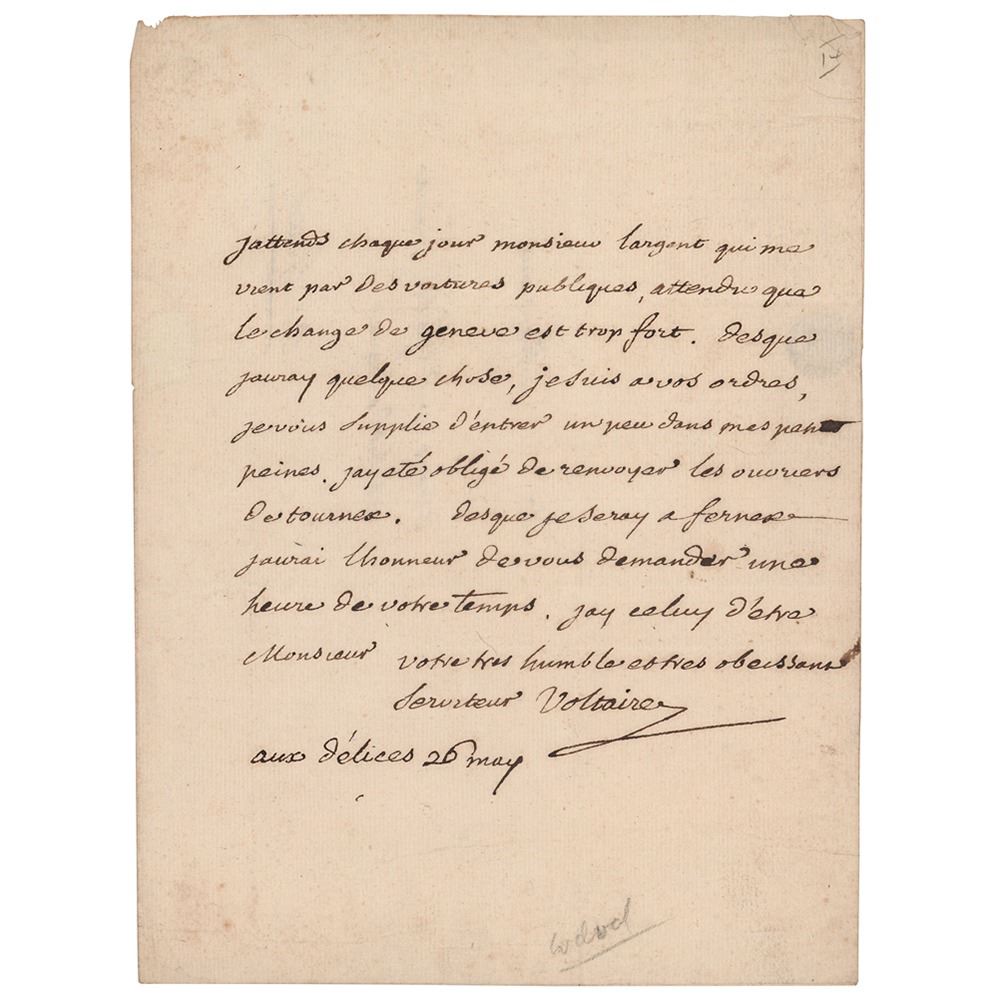 14
jattends chaque jour monsieur largent qui me
vient par des voitures publiques, attendu que
le change de geneve est trop fort. desque
jauray quelque chose, je suis a vos ordres,
je vous supplie d'entrer un peu dans mes
peines. jay eté obligé de renvoyer les ouvriers
de tournex. desque je seray a fernex
jaurai lhonneur de vous demander une
heure de votre temps. jay celuy d'être
Monsieur votre tres humble et tres obeissant
serviteur Voltaire
aux délices 26 may